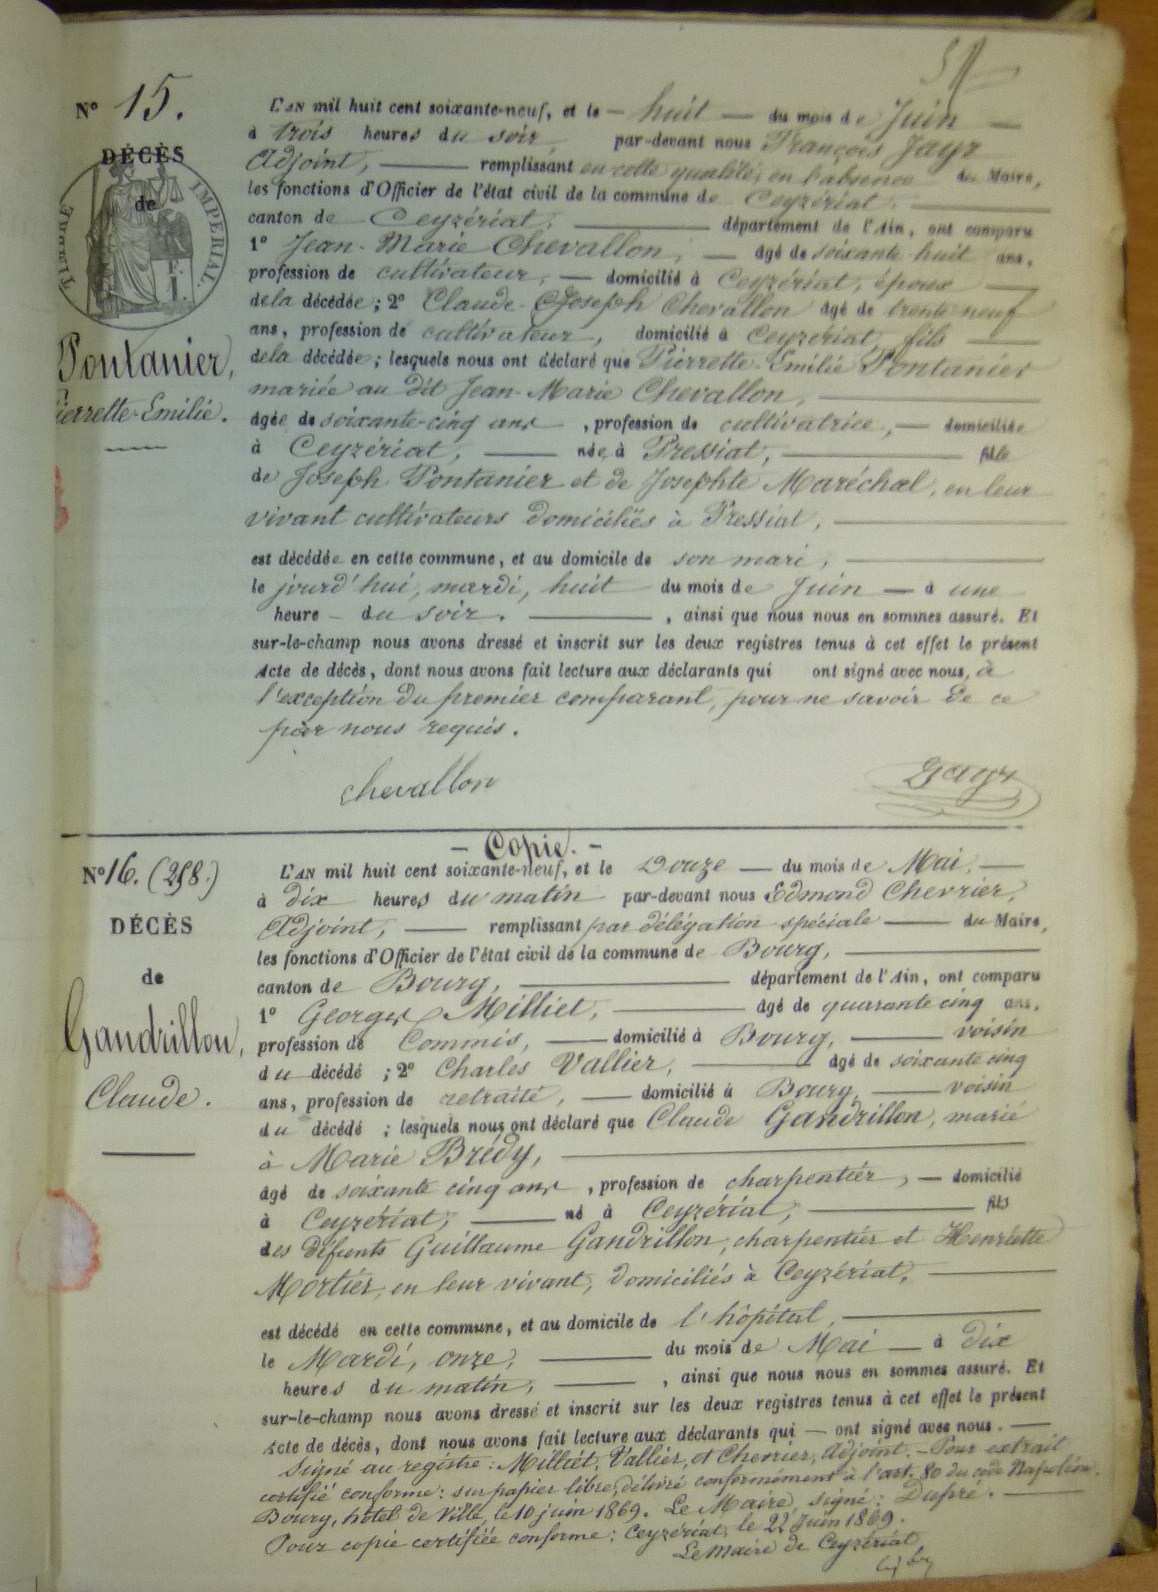 Nº 15.
DÉCÈS
de
TIMBRE IMPÉRIAL.
Pontanier,
Pierrette-Emilie.
L'AN mil huit cent soixante-neuf, et le huit du mois de Juin
à trois heures du soir, par-devant nous François Jayr
Adjoint, remplissant en cette qualité, en l'absence du Maire,
les fonctions d'Officier de l'état civil de la commune de Ceyzériat,
canton de Ceyzériat, département de l'Ain, ont comparu
1º Jean-Marie Chevallon, âgé de soixante-huit ans,
profession de cultivateur, domicilié à Ceyzériat, époux
de la décédée; 2º Claude-Joseph Chevallon âgé de trente neuf
ans, profession de cultivateur, domicilié à Ceyzériat, fils
de la décédée; lesquels nous ont déclaré que Pierrette-Emilie Pontanier
mariée au dit Jean-Marie Chevallon,
âgée de soixante-cinq ans, profession de cultivatrice, domiciliée
à Ceyzériat, née à Pressiat, fille
de Joseph Pontanier et de Josephte Maréchal, en leur
vivant cultivateurs domiciliés à Pressiat,
est décédée en cette commune, et au domicile de son mari,
le jourd'hui, mardi, huit du mois de Juin à une
heure du soir. , ainsi que nous nous en sommes assuré. Et
sur-le-champ nous avons dressé et inscrit sur les deux registres tenus à cet effet le présent
Acte de décès, dont nous avons fait lecture aux déclarants qui ont signé avec nous, à
l'exception du premier comparant, pour ne savoir de ce
par nous requis.
Chevallon Jayr
Copie.
Nº 16. (258.)
DÉCÈS
de
Gandrillon,
Claude.
L'AN mil huit cent soixante-neuf, et le Douze du mois de Mai,
à dix heures du matin par-devant nous Edmond Chevrier,
Adjoint, remplissant par délégation spéciale du Maire,
les fonctions d'Officier de l'état civil de la commune de Bourg,
canton de Bourg, département de l'Ain, ont comparu
1º Georges Milliet, âgé de quarante cinq ans,
profession de Commis, domicilié à Bourg, voisin
du décédé ; 2º Charles Vallier, âgé de soixante cinq
ans, profession de retraité, domicilié à Bourg, voisin
du décédé ; lesquels nous ont déclaré que Claude Gandrillon, marié
à Marie Brédy,
âgé de soixante cinq ans, profession de charpentier, domicilié
à Ceyzériat, né à Ceyzériat, fils
des défunts Guillaume Gandrillon, charpentier et Henriette
Mortier, en leur vivant, domiciliés à Ceyzériat,
est décédé en cette commune, et au domicile de l'hôpital,
le Mardi, onze, du mois de Mai à dix
heures du matin, , ainsi que nous nous en sommes assuré. Et
sur-le-champ nous avons dressé et inscrit sur les deux registres tenus à cet effet le présent
Acte de décès, dont nous avons fait lecture aux déclarants qui ont signé avec nous.
Signé au registre : Milliet, Vallier, et Chevrier, Adjoint. - Pour extrait
certifié conforme : sur papier libre, délivré conformément à l'art. 80 du code Napoléon.
Bourg, hôtel de Ville, le 10 juin 1869. Le Maire, signé : Dupré.
Pour copie certifiée conforme : Ceyzériat, le 22 Juin 1869.
Le Maire de Ceyzériat,